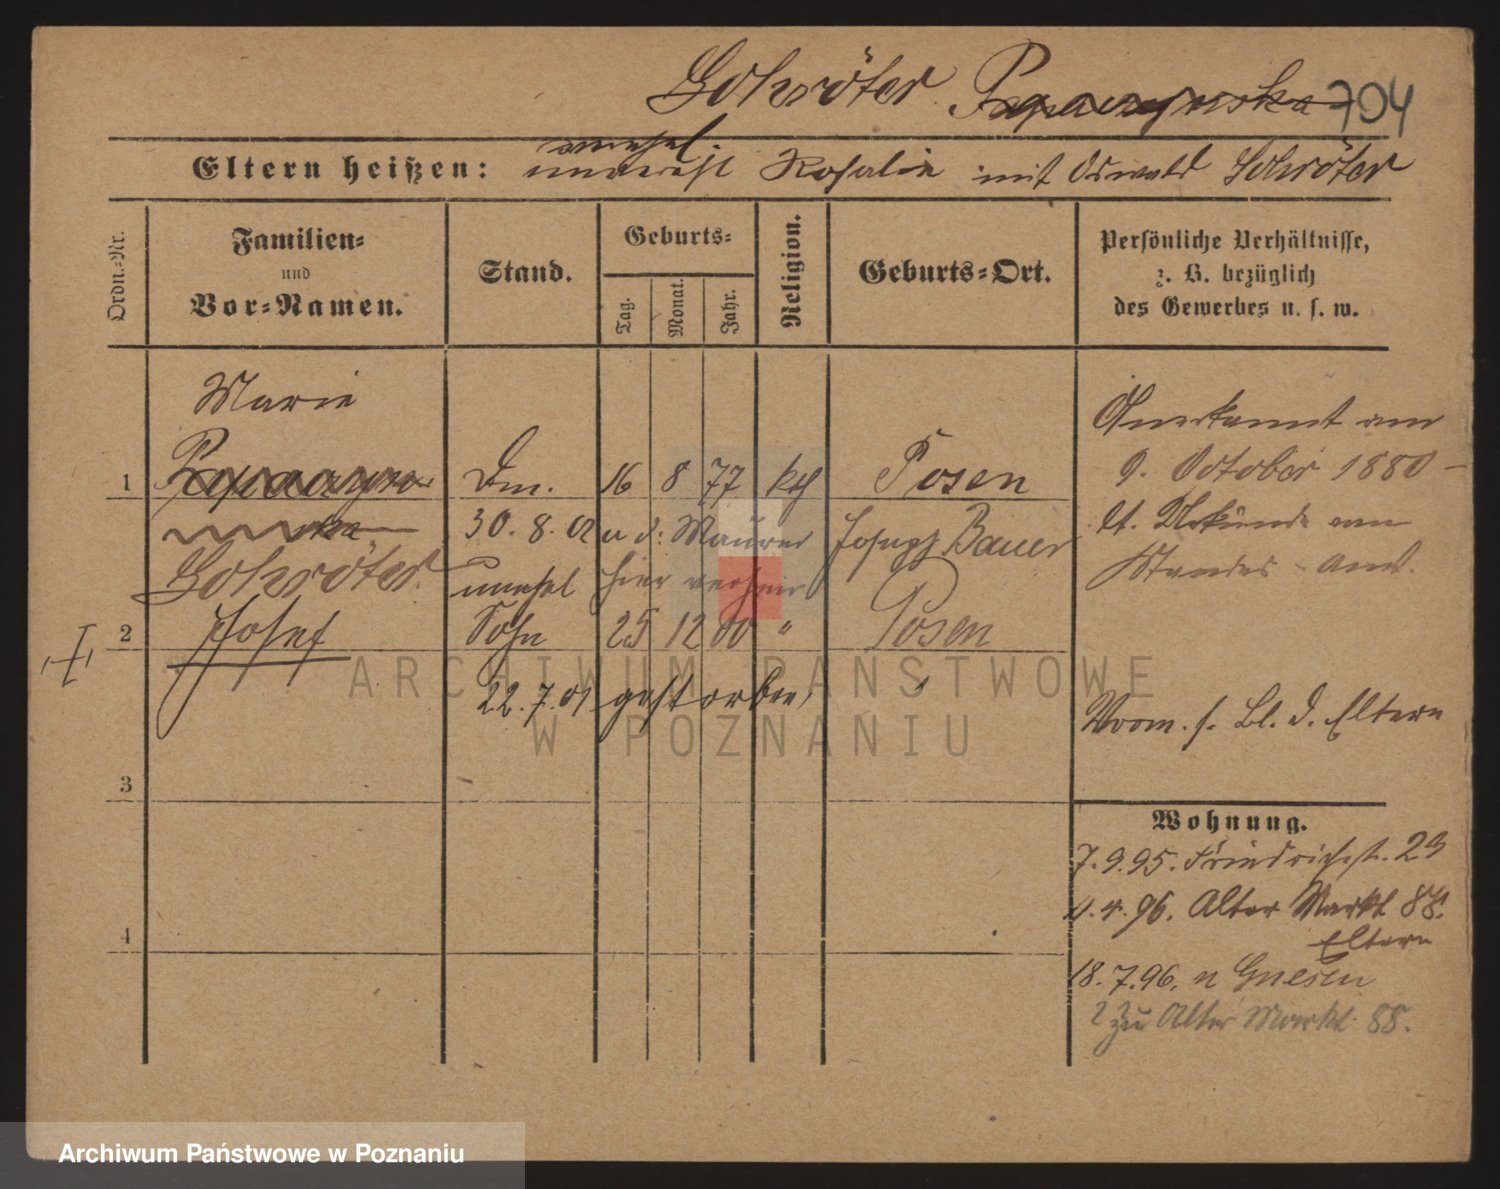 Schröter 704
Eltern heißen: unehel. Rosalie mit Oswald Schröter
Ordn.-Nr.
Familien-
und
Vor-Namen.
Stand.
Geburts-
Tag.
Monat.
Jahr.
Religion.
Geburts-Ort.
Persönliche Verhältnisse,
z. B. bezüglich
des Gewerbes u. s. w.
Marie
1 16 8 77 kth Posen
Schröter
30. 8. 02 m d. Maurer Joseph Bauer
hier verheir
unehel
2 Josef Sohn 25 12 00 " Posen
22. 7. 01 gestorben
3
4
Anerkannt am
9. October 1880
lt. Urkunde vom
Standes-Amt.
Vorm. s. Bl. d. Eltern
Wohnung.
7. 9. 95. Friedrichst. 23
4. 96. Alter Markt 88.
Eltern
18. 7. 96. n Gnesen
zu Alter Markt 88.
ARCHIWUM PAŃSTWOWE
W POZNANIU
Archiwum Państwowe w Poznaniu